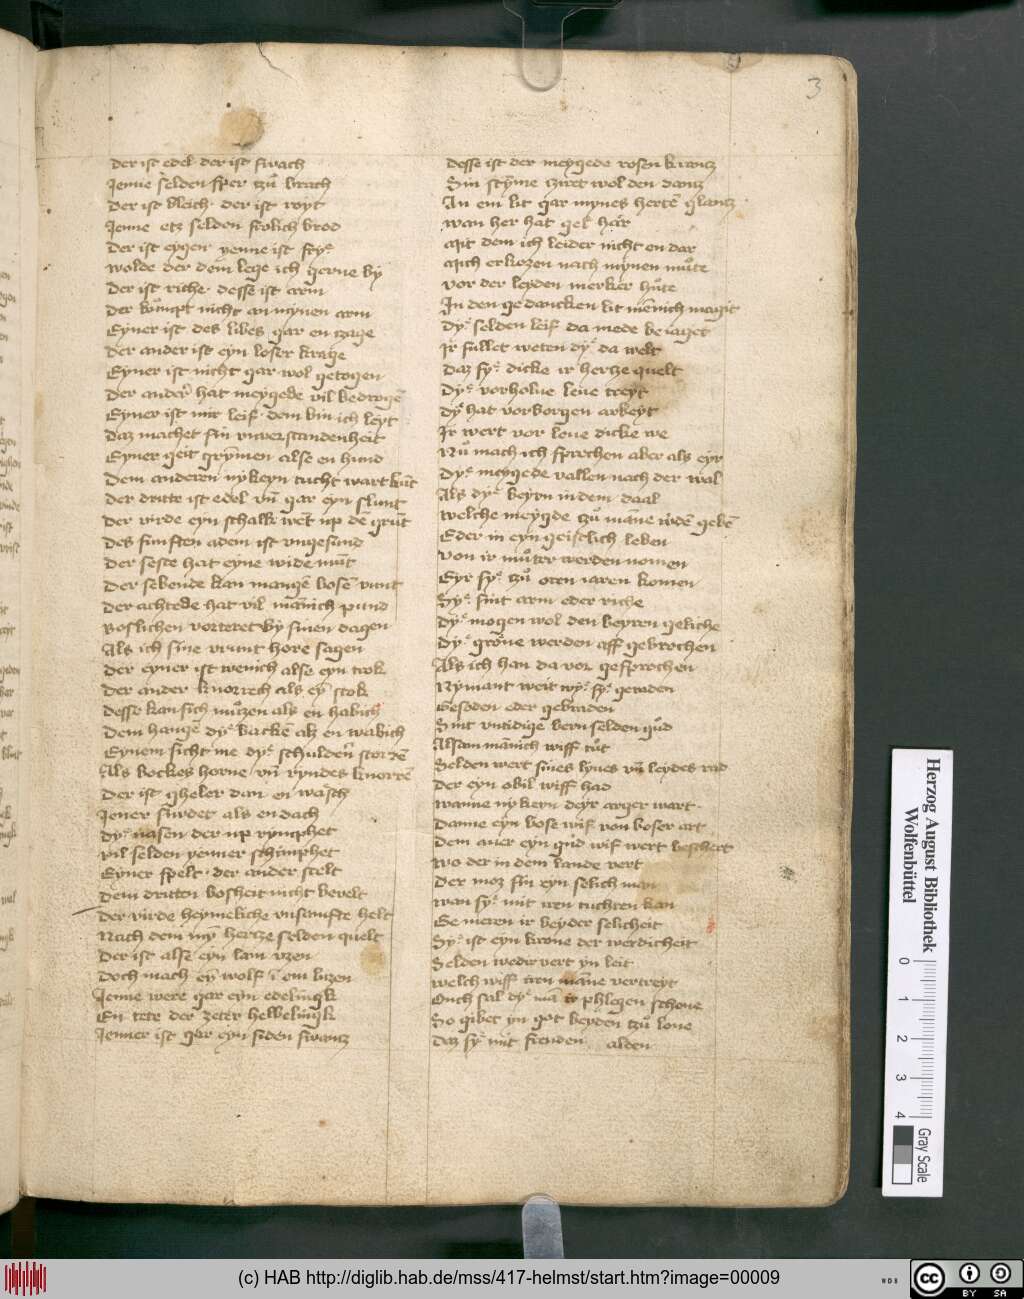 3
Der ist edel · der ist swach
Jenne selden sper tzů brach
Der ist bleich · der ist royt
Jenne etz selden frolich brod
Der ist eygen yenne ist fry
wolde der dem lege ich gerne by
Der ist riche · desse ist arm
Der kůmpt nicht an mynen arm
Eyner ist des libes gar en tzage
Der ander ist eyn loser krage
Eyner ist nicht gar wol getogen
Der ander hat meygede vil bedrogē
Eyner ist mir leif · dem bin ich leyt
Daz machet sin vnverstandenheit
Eyner geit grymen alse en hund
Dem anderen nykeyn tucht wart kūt
Der dritte ist edel vn̄ gar eyn slunt
Der virde eyn schalk wēt up dē grūt
Des funften adem ist vngesund
Der seste hat eyne wide mūt
Der sebende kan mangē bosē vunt
Der achtede hat vil mānich pund
Boslichen vorteret by sinen dagen
Als ich sine vrunt hore sagen
Der eyner ist wenich alse eyn trok
Der ander knorrech als ey stok
Desse kan sich můzen als en habich
Dem hangē dy backē alz en wabich
Eynem sicht me dy schuldern storzē
Als bockes horne vn̄ ryndes knorrē
Der ist gheler dan en wasch
Jener swdet als en dach
Dy nasen der up rymphet
vil selden yenner schimphet
Eyner spelt · der ander stelt
Dem dritten bosheit nicht bevelt
Der virde heymeliche vnsamfte helt
Nach dem my hertze selden quelt
Der ist alse eyn lam vzen
Doch mach ey wolf ī em luzen
Jenne were gar eyn edelingk
En tete der zeter helbelingk
Jenner ist gar eyn siden swantz
Desse ist der meygede rosen krantz
Sin styme tziret wol den dantz
An em lit gar mynes hertē glantz
wan her hat gel hār
Mit dem ich leider nicht en dar
Mich erkozen nach mynen můte
vor der leyden merker hůte
In den gedancken lit mēnich magit
Dy selden leif da mede beiaget
Ir sullet weten dy da welt
Daz sy dicke ir hertze quelt
Dy vorholne leue treyt
Dy hat vorborgen arbeyt
Ir wert vor leue dicke we
Nů mach ich sprechen aber als eyr
Dy meygede vallen nach der wal
Als dy beyrn in dem daal
welche meygde tzů māne wdē gebē
Eder in eyn geistlich leben
von ir můter werden nomen
Eyr sy tzů oren iaren komen
Sy sint arm eder riche
Dy mogen wol den beyren geliche
Dy grone werden aff gebrochen
Als ich han da vor gesprochen
Nymant weit wy sy geraden
Gesoden eder gebraden
Sint vntidige bern selden gůd
Alsam mānich wiff tůt
Selden wert sines lyues vn̄ leydes rad
Der eyn obil wiff had
wanne nykern deyr arger wart
Danne eyn bose wif von boser art
Dem auer eyn gud wif wert beschert
wo der in dem lande vert
Der moz sin eyn selich man
wan sy mit iren tuchten kan
Gemeren ir beyder selicheit
Sy ist eyn krone der werdicheit
Selden wedir vert yn leit
welch wiff iren māne vertreyt
Ouch sal dy mā ir phlegen schone
So gibet yn got beyden tzů lone
Daz sy mit freuden alden
Herzog August Bibliothek
Wolfenbüttel
0 1 2 3 4
Gray Scale
(c) HAB http://diglib.hab.de/mss/417-helmst/start.htm?image=00009
WDB
cc BY SA